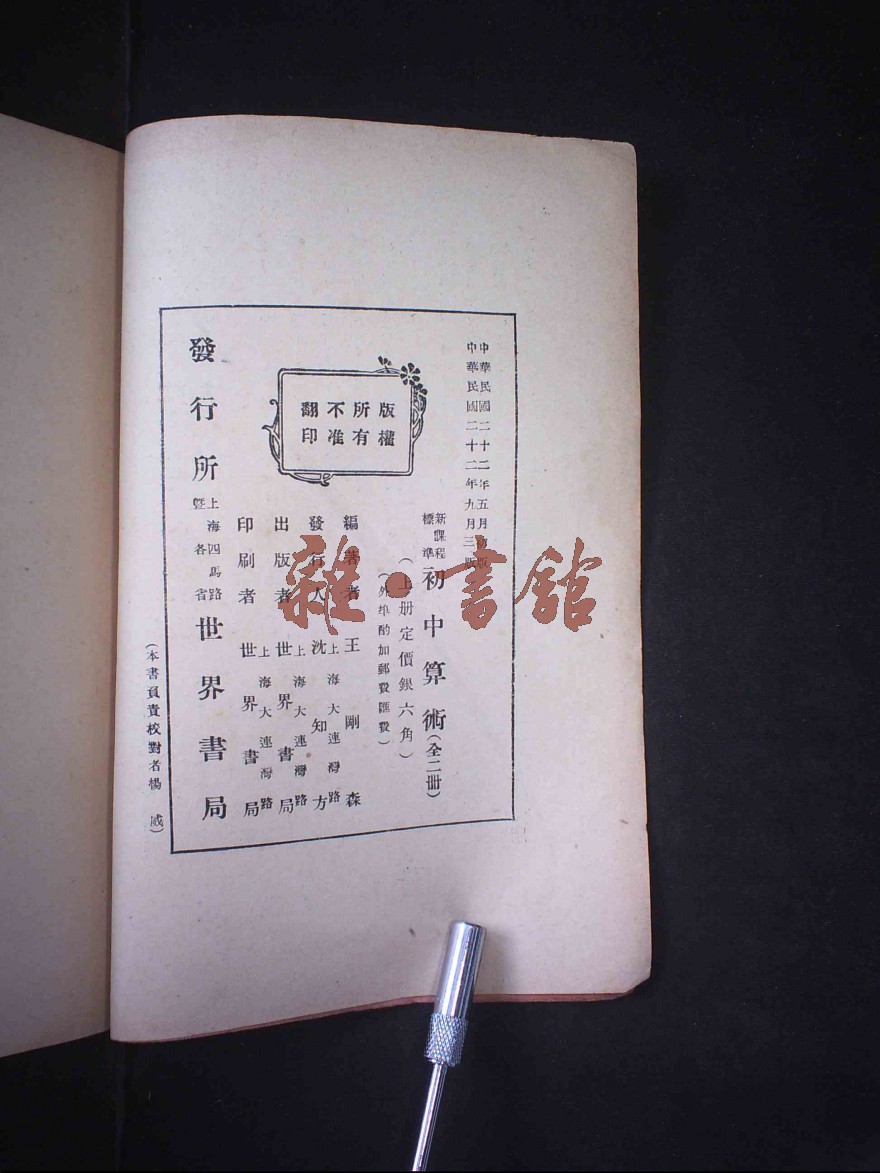 中華民國二十二年五月初版
中華民國二十二年九月三版
新課程標準 初中算術(全二冊)
(上册定價銀六角)
(外埠酌加郵費匯費)
版權所有
不准翻印
編著者 王剛森
發行人 沈知方
上海大連灣路
出版者 世界書局
上海大連灣路
印刷者 世界書局
上海大連灣路
發行所 上海四馬路暨各省 世界書局
(本書負責校對者楊 威)
雜·書館